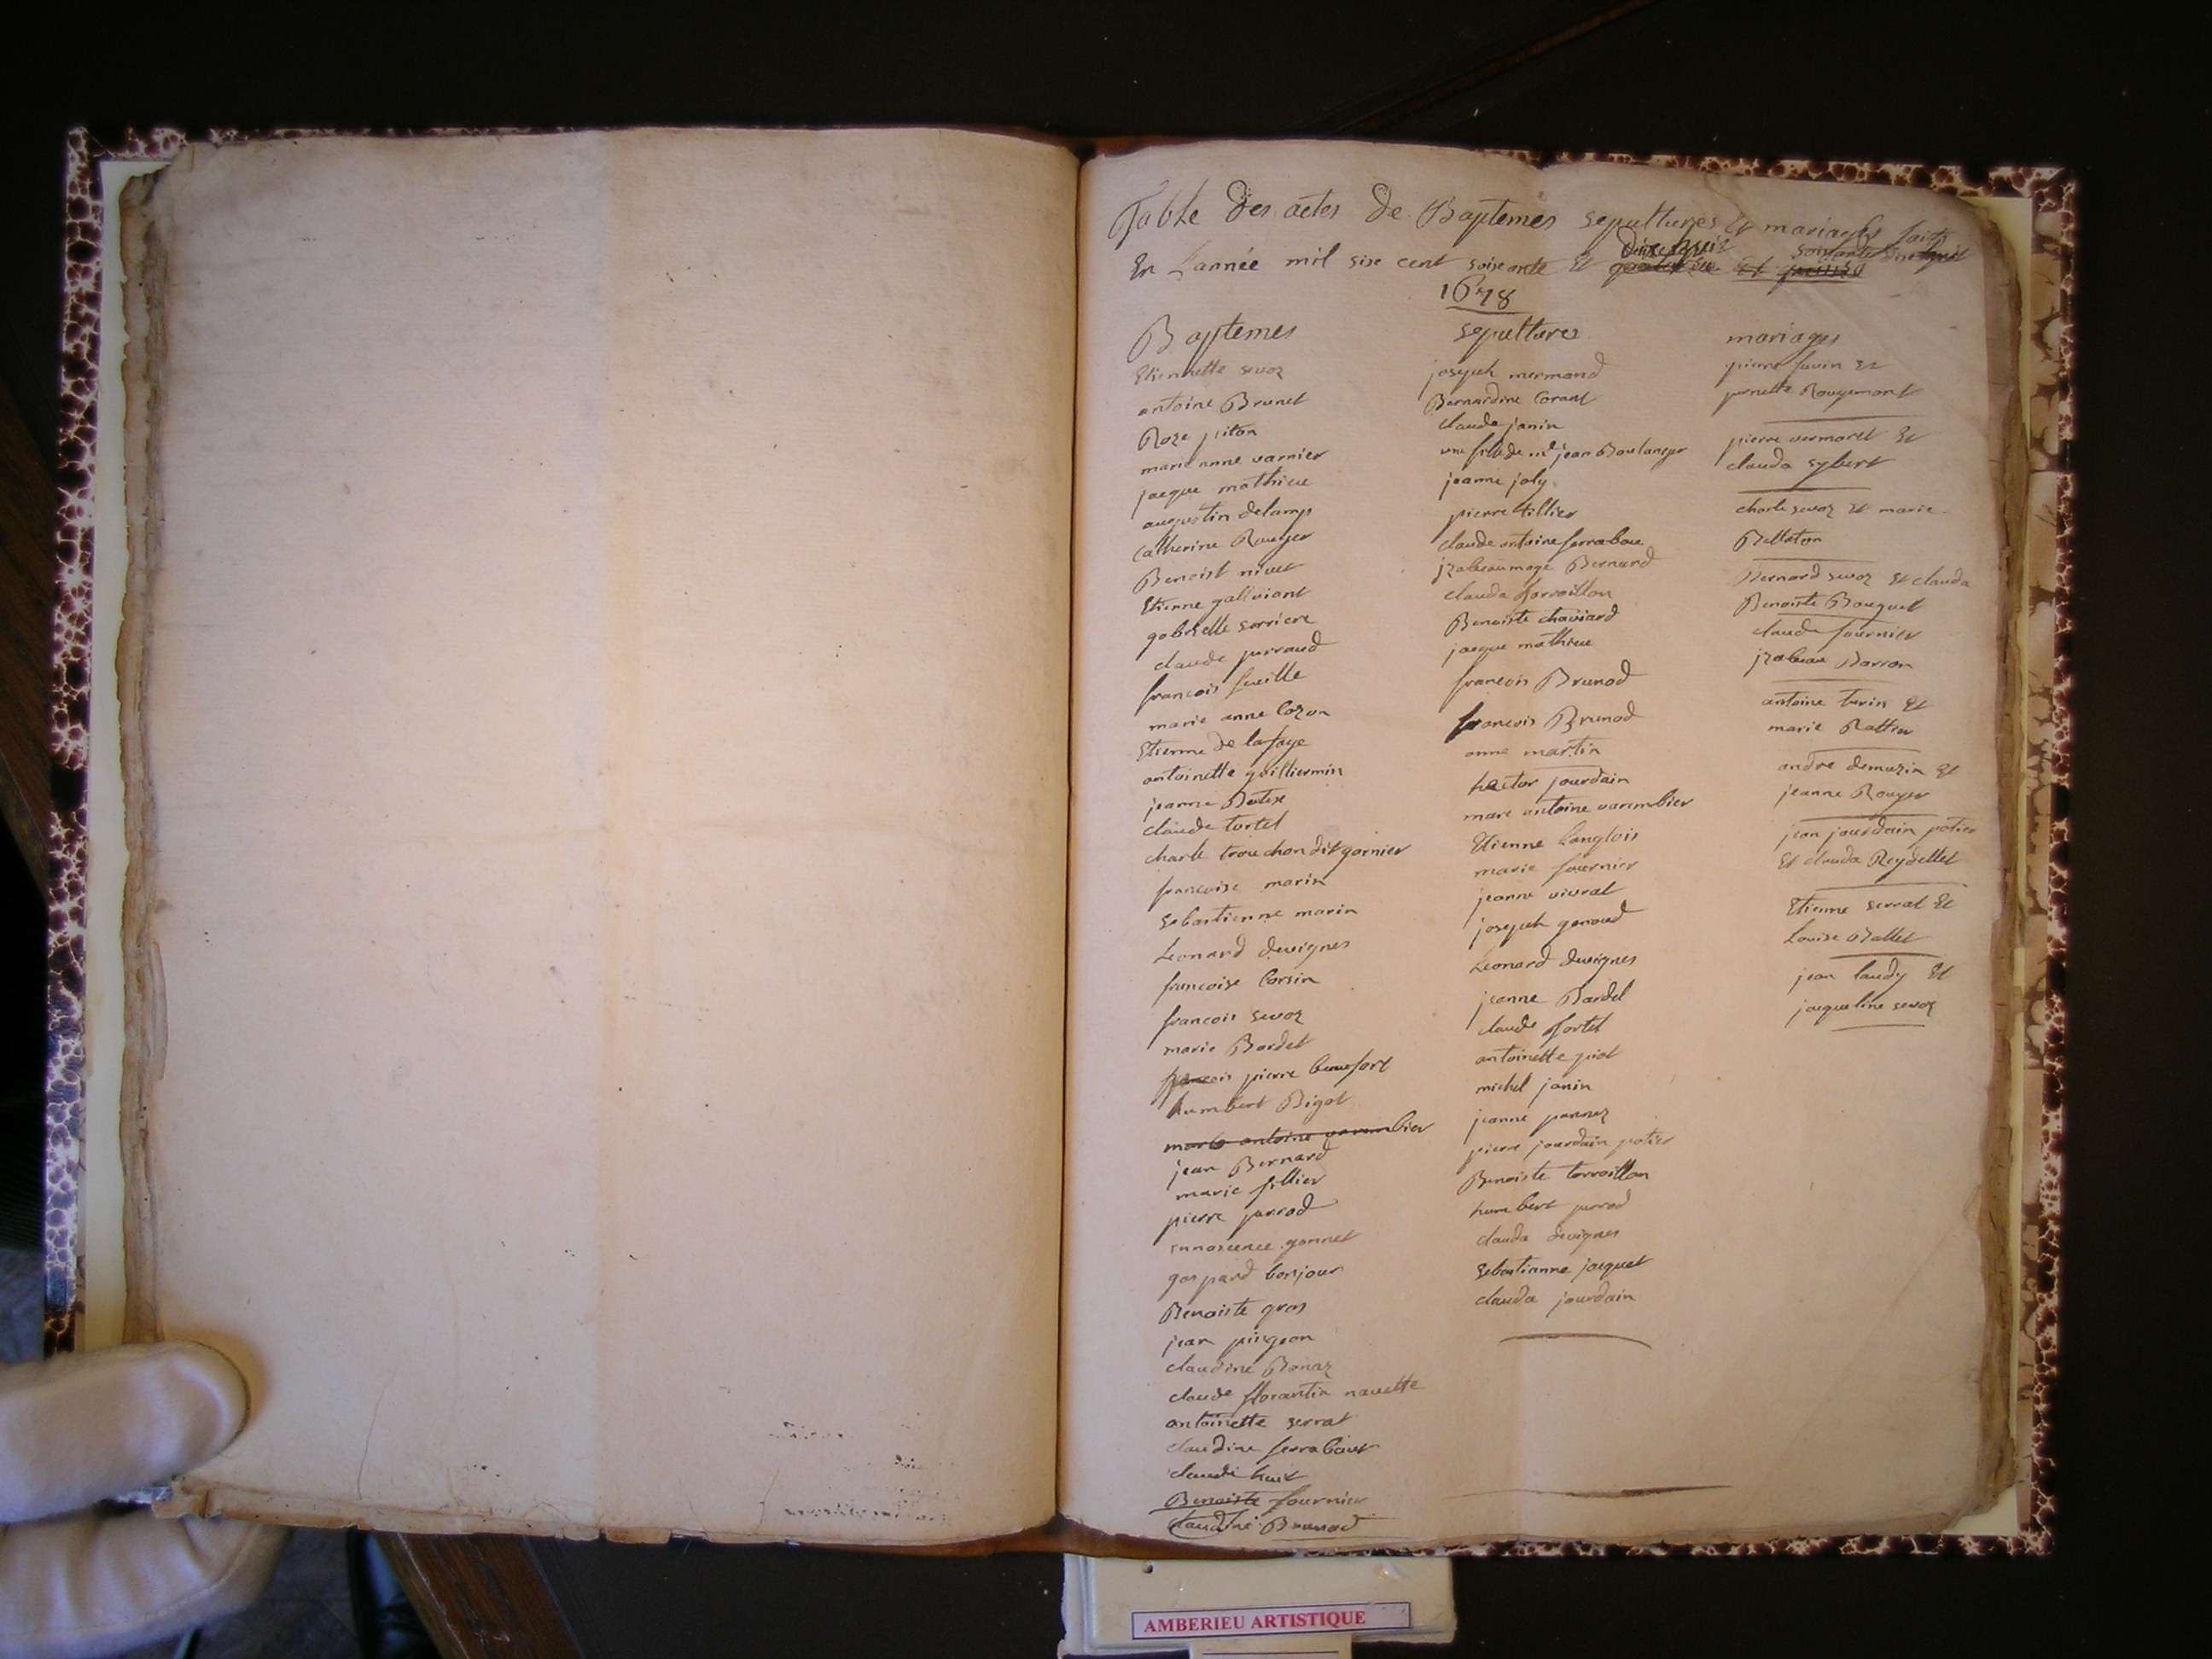 Table des actes de Baptemes sepultures et mariages faits
En L'année mil sixe cent soixante et dixe huit
1678
Baptemes
Etiennette sevoz
antoine Brunet
Roze piton
marie anne varnier
jacque mathieu
augustin delamp
Catherine Rouyer
Benoist nivet
Etienne gallviant
gabrielle sorriere
claude perraud
francois fueille
marie anne Cozon
Etienne de lafaye
antoinette guilliermin
jeanne
claude tortel
charle trouchon dit garnier
francoise marin
sebastienne marin
Leonard duvignes
francoise Corsin
francois sevoz
marie Bardet
francois pierre beaufort
humbert Bigot
marc antoine varambier
jean Bernard
marie fillier
pierre parrod
innocence gonnet
gaspard bonjour
Benoiste gros
jean
claudine Bonaz
claude florantin navette
antoinette serrat
claudine ferrabour
claude huit
Benoiste fournier
claudine Brunod
sepultures
joseph mermand
Bernardine Corant
claude janin
une fille de me jean Boulanger
jeanne joly
pierre tillier
claude antoine ferraboue
jzabeau Bernard
clauda torraillon
Benoiste chaviard
jacque mathieu
francois Brunod
francois Brunod
anne martin
hector jourdain
marc antoine varambier
Etienne Langlois
marie fournier
jeanne vivrat
joseph genoud
Leonard duvignes
jeanne Bardel
claude tortel
antoinette piot
michel janin
jeanne pannez
pierre jourdain potier
Benoiste torraillon
humbert perrod
clauda devignes
sebastianne jacquet
clauda jourdain
mariages
pierre favin et
pernette Rougemont
pierre vermaret et
clauda sybert
charle sevoz et marie
Belleton
Bernard sevoz et clauda
Benoiste Bouquet
claude fournier
jzabeau Barron
antoine turin et
marie Rattier
andre demuzin et
jeanne Rouyer
jean jourdain potier
Et clauda Reydellet
Etienne serrat et
Louise Ballet
jean laudy et
jacqueline sevoz
AMBERIEU ARTISTIQUE